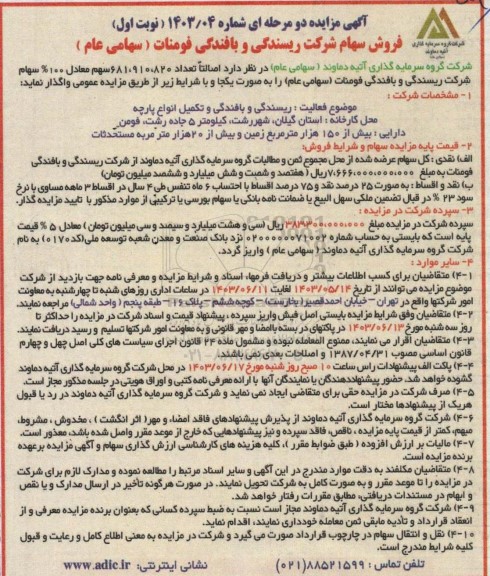 آگهی مزایده دو مرحله ای شماره ۱۴۰۳/۰۴ ( نوبت اول)
فروش سهام شرکت ریسندگی و بافندگی فومنات ( سهامی عام )
شرکت گروه سرمایه گذاری
آتیه دماوند
شرکت گروه سرمایه گذاری آتیه دماوند ( سهامی عام) در نظر دارد اصالتاً تعداد ۶۸۱،۹۱۰،۸۲۰سهم معادل ۱۰۰% سهام
شرکت ریسندگی و بافندگی فومنات (سهامی عام) را به صورت یکجا و با شرایط زیر از طریق مزایده عمومی واگذار نماید:
۱- مشخصات شرکت :
موضوع فعالیت : ریسندگی و بافندگی و تکمیل انواع پارچه
محل کارخانه : استان گیلان، شهررشت، کیلومتر ۵ جاده رشت، فومن
دارایی : بیش از ۱۵۰ هزار مترمربع زمین و بیش از ۲۰هزار متر مربع مستحدثات
۲- قیمت پایه مزایده سهام و شرایط فروش:
الف) نقدی : کل سهام عرضه شده از محل مجموع ثمن و مطالبات گروه سرمایه گذاری آتیه دماوند از شرکت ریسندگی و بافندگی
فومنات به مبلغ ۷،۶۶۶،۰۰۰،۰۰۰،۰۰۰ریال ( هفتصد و شصت و شش میلیارد و ششصد میلیون تومان)
ب) نقد و اقساط : به صورت ۲۵ درصد نقد و ۷۵ درصد اقساط با احتساب ۶ ماه تنفس طی ۴ سال در اقساط ۳ ماهه مساوی با نرخ
سود ۲۳ % در قبال تضمین ملکی سهل البیع یا ضمانت نامه بانکی یا سهام بورسی یا ترکیبی از موارد مذکور با تایید مزایده گذار.
۳- سپرده شرکت در مزایده :
سپرده شرکت در مزایده مبلغ ۳۸۳،۳۰۰،۰۰۰،۰۰۰ ریال (سی و هشت میلیارد و سیصد و سی میلیون تومان) معادل ۵ % قیمت
پایه است که بایستی به حساب شماره ۰۲۰۰۰۰۰۰۷۱۰۰۲ نزد بانک صنعت و معدن شعبه توسعه ملی(کد۰۱۷۰) به نام
شرکت گروه سرمایه گذاری آتیه دماوند ( سهامی عام ) واریز گردد.
۴- سایر موارد :
۴-۱) متقاضیان برای کسب اطلاعات بیشتر و دریافت فرمها، اسناد و شرایط مزایده و معرفی نامه جهت بازدید از شرکت
موضوع مزایده می توانند از تاریخ ۱۴۰۳/۰۵/۱۴ لغایت ۱۴۰۳/۰۶/۱۱ در ساعات اداری روزهای شنبه تا چهارشنبه به معاونت
امور شرکتها واقع در تهران – خیابان احمدقصیر( بخارست) – کوچه ششم – پلاک ۱۶ – طبقه پنجم ( واحد شمالی) مراجعه نمایند.
۴-۲) متقاضیان وفق شرایط مزایده بایستی اصل فیش واریز سپرده ، پیشنهاد قیمت و اسناد شرکت در مزایده را حداکثر تا
روز سه شنبه مورخ ۱۴۰۳/۰۶/۱۳ در پاکتهای در بسته باامضا و مهر قانونی و به معاونت امور شرکتها تسلیم و رسید دریافت نمایند.
۴-۳) متقاضیان اقرار می نمایند، ممنوع المعامله نبوده و مشمول ماده ۲۴ قانون اجرای سیاست های کلی اصل چهل و چهارم
قانون اساسی مصوب ۱۳۸۷/۰۴/۳۱ و اصلاحات بعدی نمی باشند.
۴-۴) پاکت الف پیشنهادات راس ساعت ۱۰ صبح روز شنبه مورخ ۱۴۰۳/۰۶/۱۷ در محل شرکت گروه سرمایه گذاری آتیه دماوند
گشوده خواهد شد. حضور پیشنهاددهندگان یا نمایندگان آنها با ارائه معرفی نامه کتبی و اوراق هویتی در جلسه مذکور مجاز است.
۴-۵) صرف شرکت در مزایده حقی برای متقاضی ایجاد نمی نماید و شرکت گروه سرمایه گذاری آتیه دماوند در رد یا قبول
هریک از پیشنهادها مختار است.
۴-۶) شرکت گروه سرمایه گذاری آتیه دماوند از پذیرش پیشنهادهای فاقد امضاء و مهر( اثر انگشت ) ، مخدوش ، مشروط،
مبهم، کمتر از قیمت پایه مزایده ، ناقص، فاقد سپرده و نیز پیشنهادهایی که خارج از موعد مقرر واصل شده باشد، معذور است.
۴-۷) مالیات بر ارزش افزوده ( طبق ضوابط مقرر )، کلیه هزینه های کارشناسی ارزش گذاری سهام و آگهی مزایده برعهده
برنده مزایده است.
۴-۸) متقاضیان مکلفند به دقت موارد مندرج در این آگهی و سایر اسناد مرتبط را مطالعه نموده و مدارک لازم برای شرکت
در مزایده را تا موعد مقرر و به صورت کامل به شرکت تحویل نمایند. در صورت هرگونه تأخیر در ارسال مدارک و یا نقص
و ابهام در مستندات دریافتی، مطابق مقررات رفتار خواهد شد.
۴-۹) شرکت گروه سرمایه گذاری آتیه دماوند مجاز است نسبت به ضبط سپرده کسانی که بعنوان برنده مزایده معرفی و از
انعقاد قرارداد و تأدیه مابقی ثمن معامله خودداری نمایند، اقدام نماید.
۴-۱۰) نقل و انتقال سهام در چارچوب قرارداد صورت می گیرد و شرکت در مزایده به معنی اطلاع کامل و رعایت و قبول
کلیه شرایط مندرج است.
تلفن تماس : ۸۸۵۲۱۵۹۹(۰۲۱)
نشانی اینترنتی: www.adic.ir